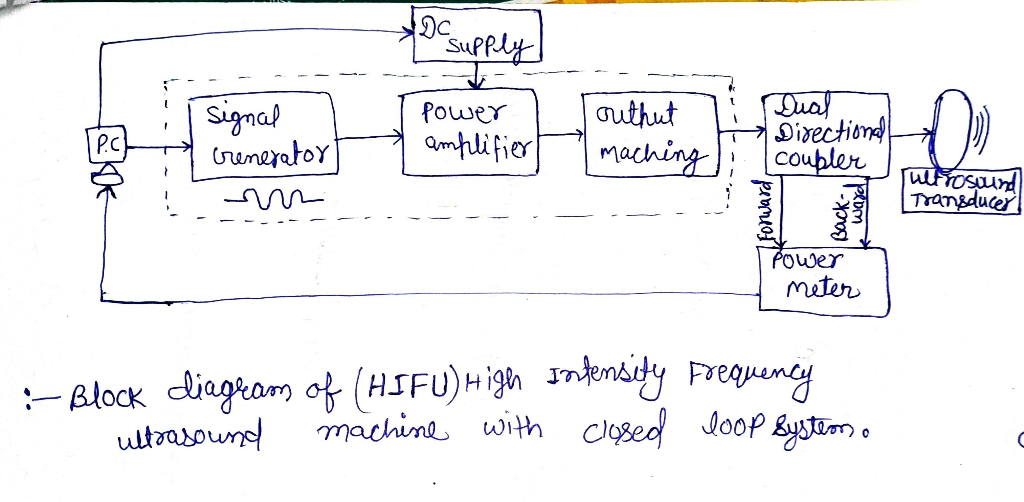 DC
supply
P.C
Signal
Generator
Power
amplifier
output
maching
Dual
Directional
coupler
ultrosound
Transducer
Forward
Back-
ward
Power
meter
:- Block diagram of (HIFU) High Intensity Frequency
ultrasound machine with closed loop system.